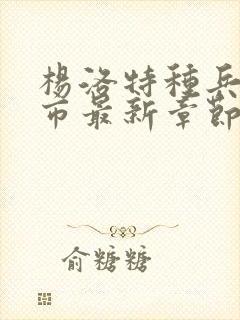 楊洛特種兵
市最新章節
俞糖糖